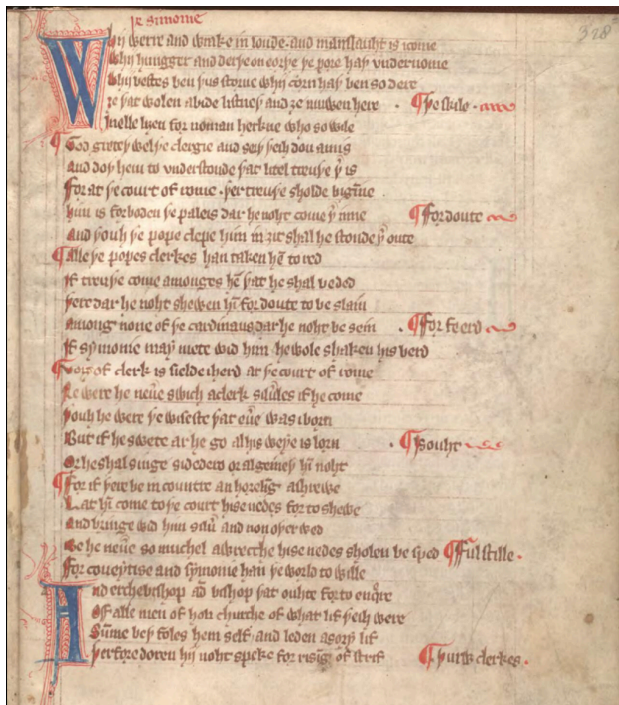 þe simonie
328
Whij werre and wrake in londe· and manslauht is icome
Whij hungger and derþe on eorþe þe pore haþ vndernome
Whij bestes ben þus storue whij corn haþ ben so dere
Ȝe þat wolen abide listneþ and ȝe muwen here · ¶ þe skile ·
I nelle liȝen for noman herkne who so wile
¶ God greteþ wel þe clergie and seiþ þeih don amis
And doþ hem to vnderstonde þat litel treuþe þ̾ is
For at þe court of rome · þer treuþe sholde biginne
Him is forboden þe paleis dar he noht come þ̾ inne ¶ for doute
And þouh þe pope clepe him in ȝit shal he stonde þ̾ oute
¶ Alle þe popes clerkes han taken hẽ to red
If treuþe come amonges hẽ þat he shal be ded
þere dar he noht shewen hĩ for doute to be slain
Among none of þe cardinaus dar he noht be sein · ¶ for feerd
If symonie may mete wid him · he wole shaken his berd
¶ Voiz of clerk is sielde iherd at þe court of rome
Ne were he neuẽ swich a clerk sãles if he come
þouh he were þe wiseste þat euẽ was iborn
But if he swete ar he go al his weye is lorn · ¶ Isouht
Or he shal singe si dedero or al geineþ hĩ noht
¶ For if þere be in countre an horeling a shrewe
Lat hĩ come to þe court hise nedes for to shewe
And bringe wid him sãr and non oþer wed
Be he neuẽ so muchel a wrecche hise nedes sholen be sped ¶ ful stille ·
For coueytise and symonie han þe world to wille
And erchebishop ãd bishop þat ouhte for to enqre
Of alle men of holi churche of what lif þeih were
Sũme beþ foles hem self · and leden a sory lif
þerfore doren hij noht speke for risĩg of strif ¶ þurw clerkes ·